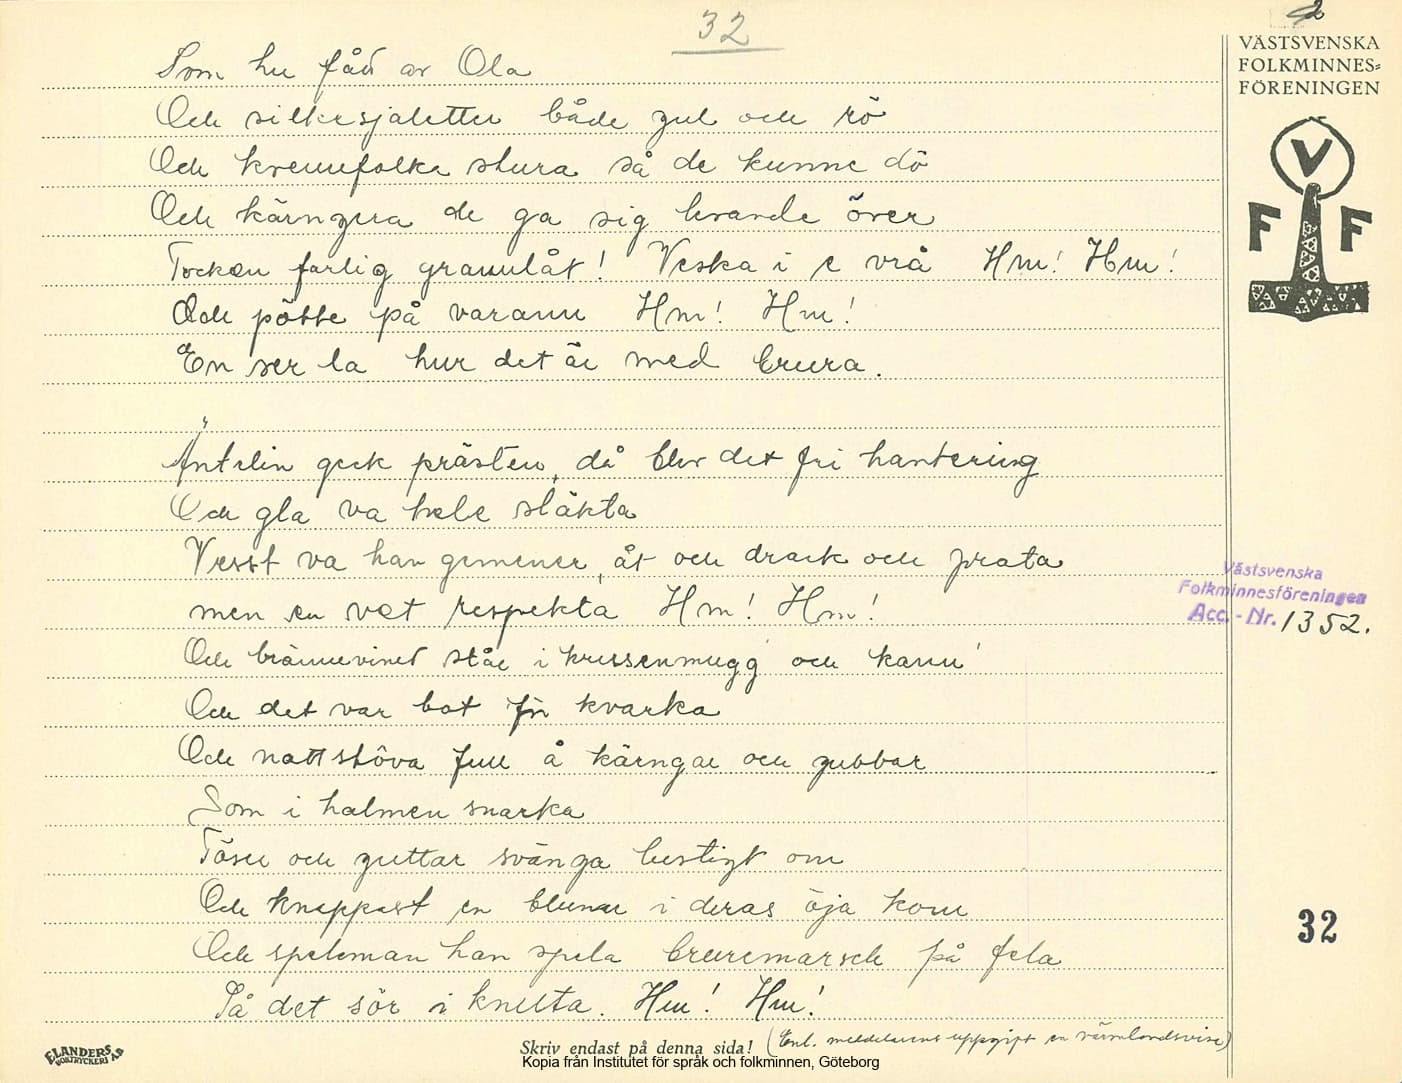 32
2
VÄSTSVENSKA
FOLKMINNES=
FÖRENINGEN
V
F F
Som hu fåd av Ola
Och silkesjaletten både gul och rö
Och kvennfolka stura så de kunne dö
Och kärngera de ga sig hvande över
Tocken farlig grannlåt! Veska i e vrå Hm! Hm!
Och pötte på varann Hm! Hm!
En ser la hur det är med brura.
Äntelin geck prästen, då blev det fri hantering
Och gla va hele släkta
Vesst va han gemener, åt och drack och prata
men en vet respekta Hm! Hm!
Och brännvinet ståe i krussenmugg och kann'
Och det var bot för kvarka
Och nattstöva full å kärngar och gubbar
Som i halmen snarka
Töser och guttar svänga lustigt om
Och knappast en blunn i deras öja kom
Och speleman han spela bruremarsch på fela
Så det sör i knuta. Hm! Hm!
Västsvenska
Folkminnesföreningen
Acc.-Nr. 1352.
32
ELANDERS
BOKTRYCKERI AB
Skriv endast på denna sida! (Enl. meddelarens uppgift en värmlandsvisa)
Kopia från Institutet för språk och folkminnen, Göteborg